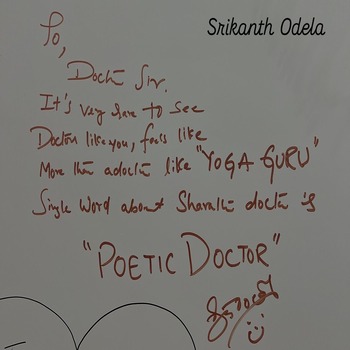 Srikanth Odela
To,
Doctor Sir.
It's very rare to see
Doctors like you, feels like
More than a doctor like "YOGA GURU"
Single word about Sharath doctor is
"POETIC DOCTOR"